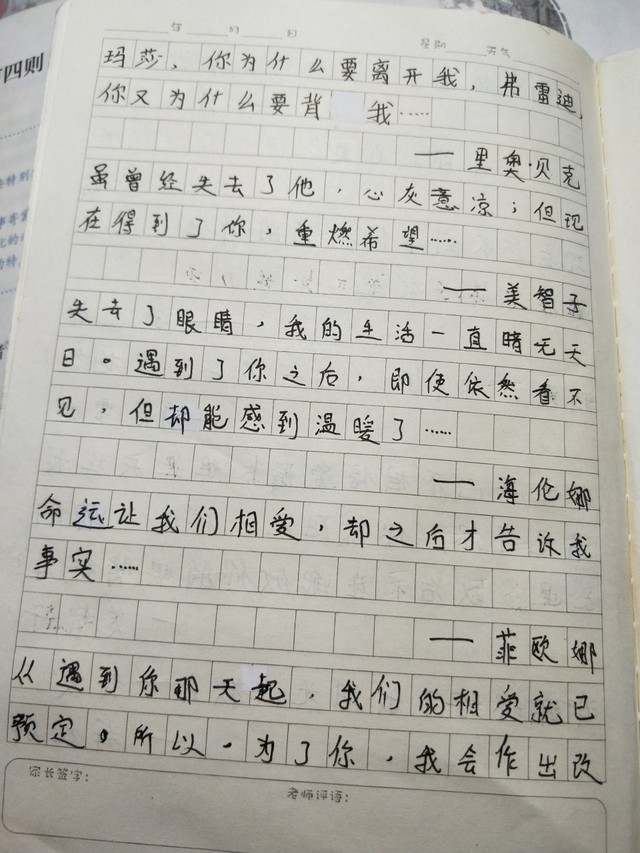 四则
年 月 日 星期 天气
玛莎，你为什么要离开我，弗雷迪，
你又为什么要背 我……
——里奥·贝克
虽曾经失去了他，心灰意凉；但现
在得到了你，重燃希望……
——美智子
失去了眼睛，我的生活一直暗无天
日。遇到了你之后，即使依然看不
见，但却能感到温暖了……
——海伦娜
命运让我们相爱，却之后才告诉我
事实……
——菲欧娜
从遇到你那天起，我们的相爱就已
预定。所以，为了你，我会作出改
家长签字：
老师评语：